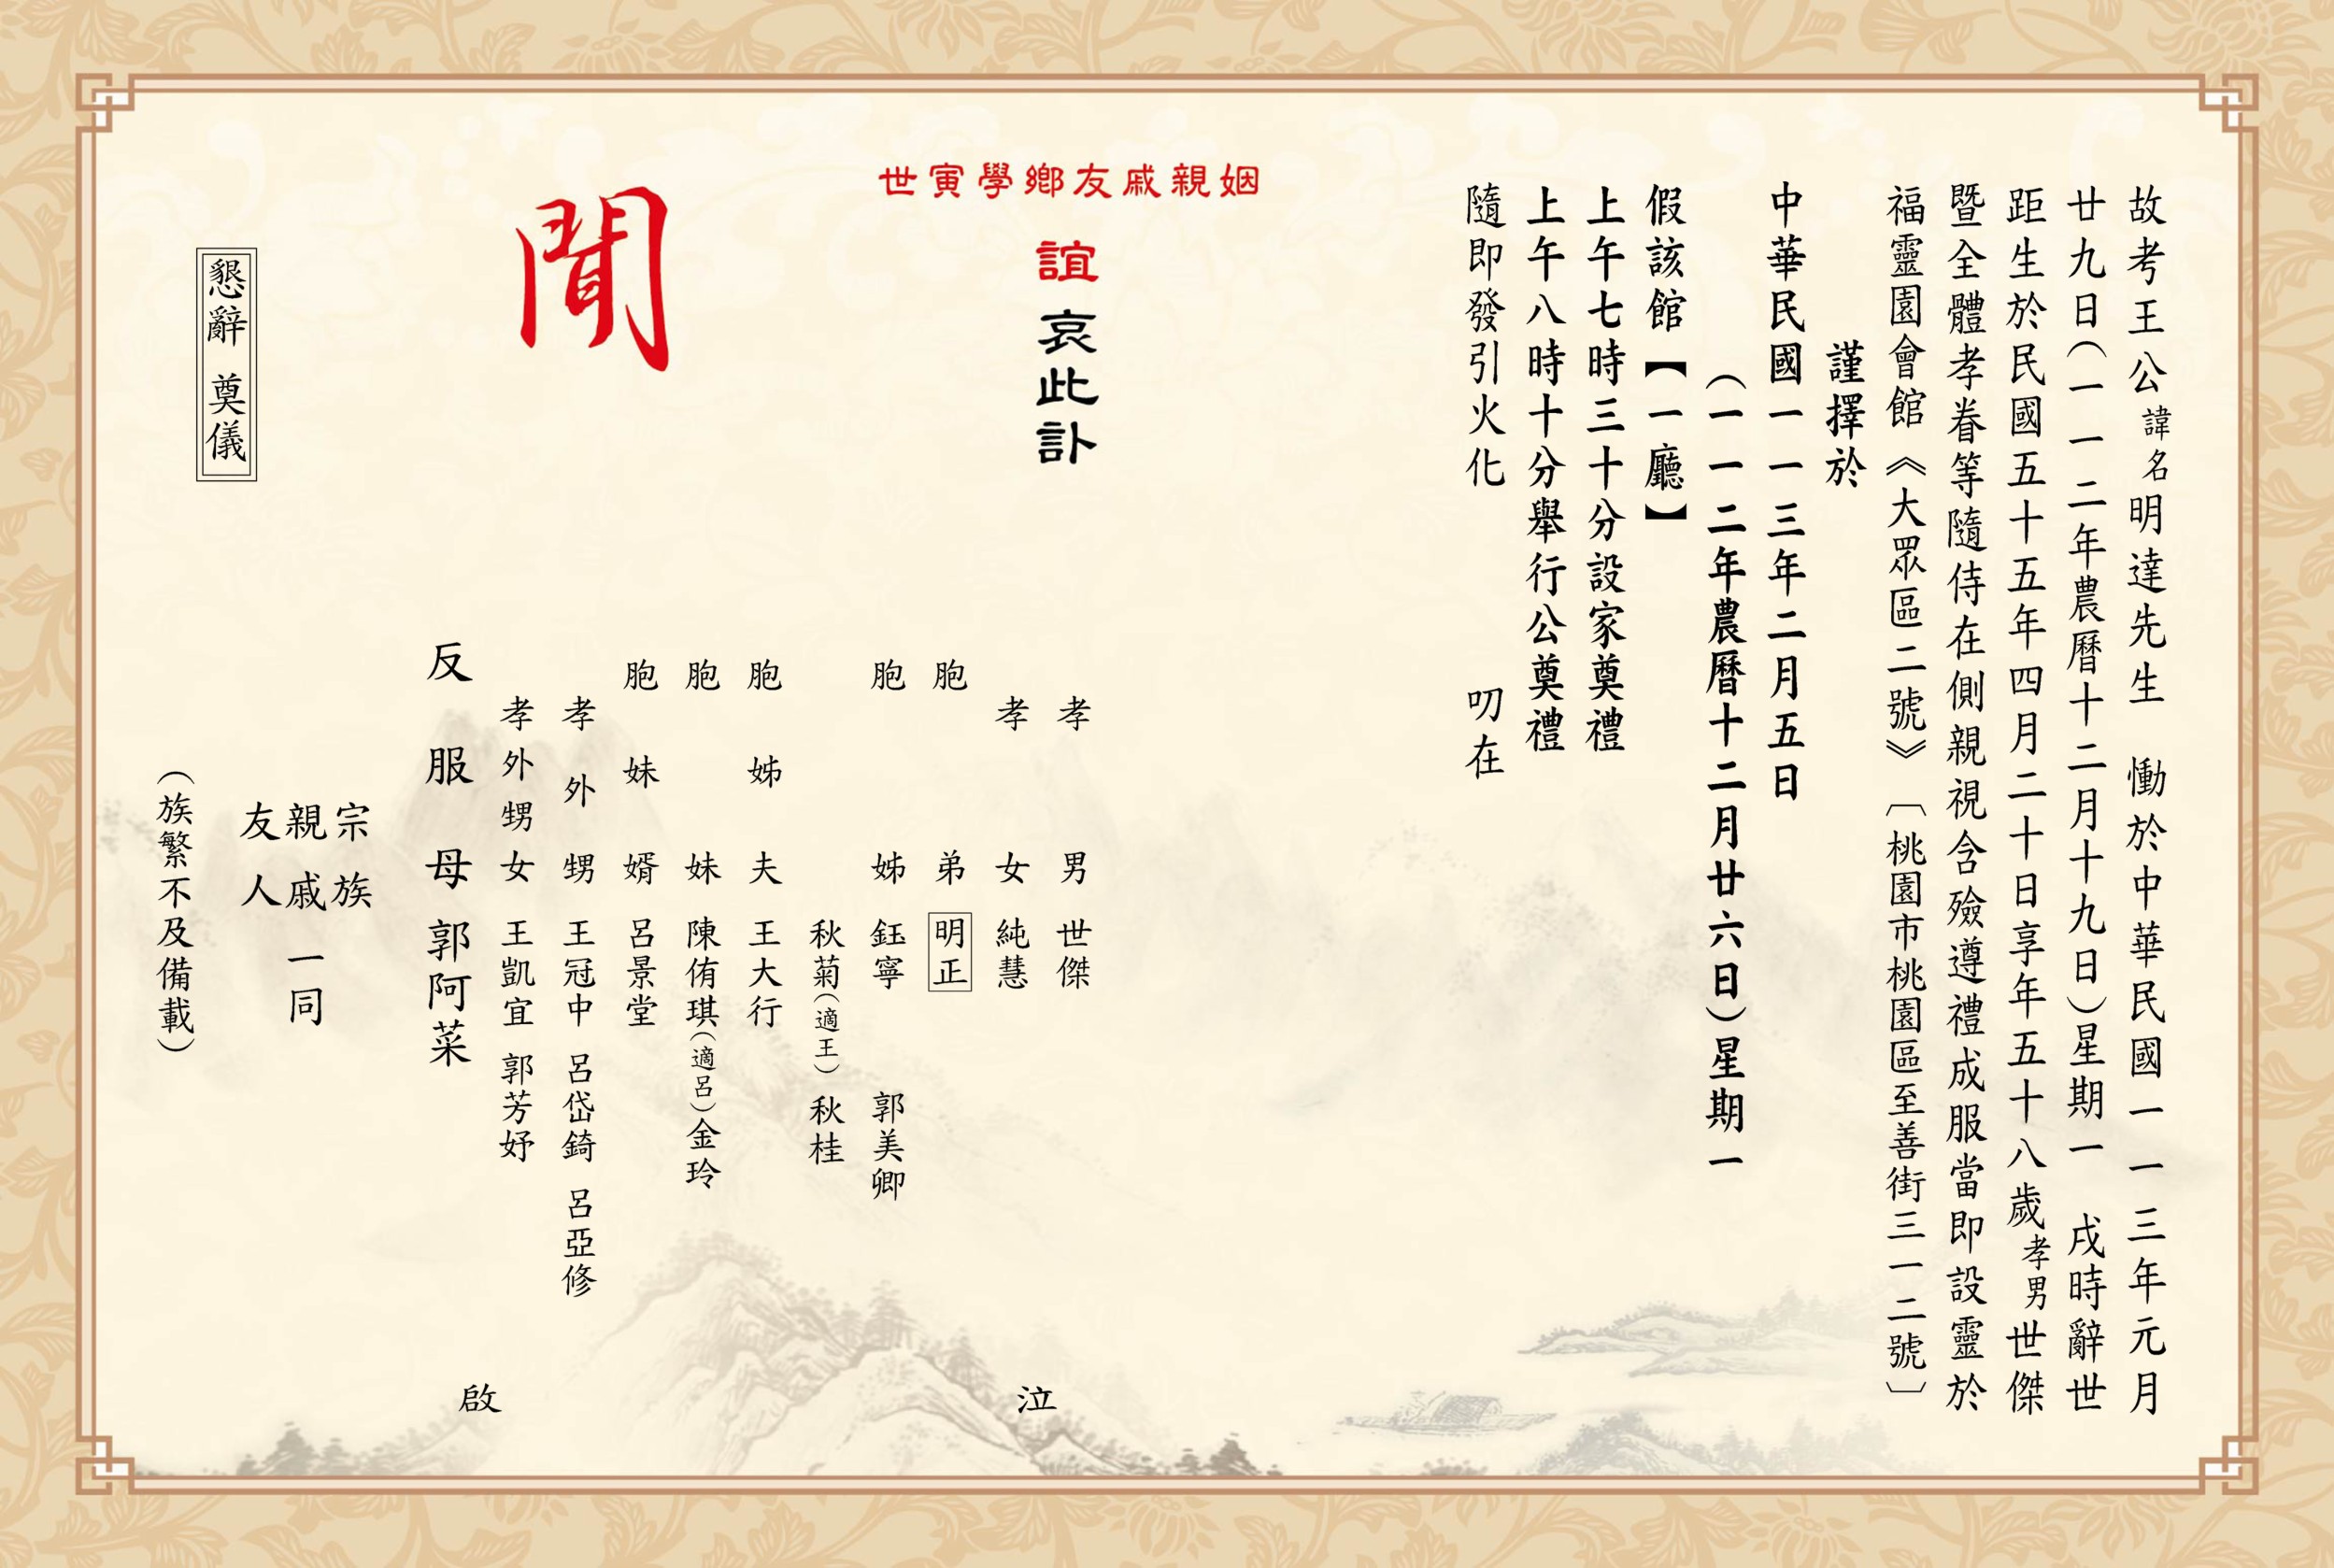 故考王公諱名明達先生　慟於中華民國一一三年元月
廿九日（一一二年農曆十二月十九日）星期一　戌時辭世
距生於民國五十五年四月二十日享年五十八歲孝男世傑
暨全體孝眷等隨侍在側親視含殮遵禮成服當即設靈於
福靈園會館《大眾區二號》〔桃園市桃園區至善街三一二號〕
謹擇於
中華民國一一三年二月五日
（一一二年農曆十二月廿六日）星期一
假該館【一廳】
上午七時三十分設家奠禮
上午八時十分舉行公奠禮
隨即發引火化　　叨在
姻親戚友鄉學寅世
誼哀此訃
聞
孝男　世傑
孝女　純慧
胞弟　明正
胞姊　鈺寧　郭美卿
秋菊（適王）秋桂
胞姊夫　王大行
胞妹　陳侑琪（適呂）金玲
胞妹婿　呂景堂
孝外甥　王冠中　呂岱錡　呂亞修
孝外甥女　王凱宜　郭芳妤
反服母　郭阿菜
泣
啟
宗族
親戚一同
友人
懇辭　奠儀
（族繁不及備載）